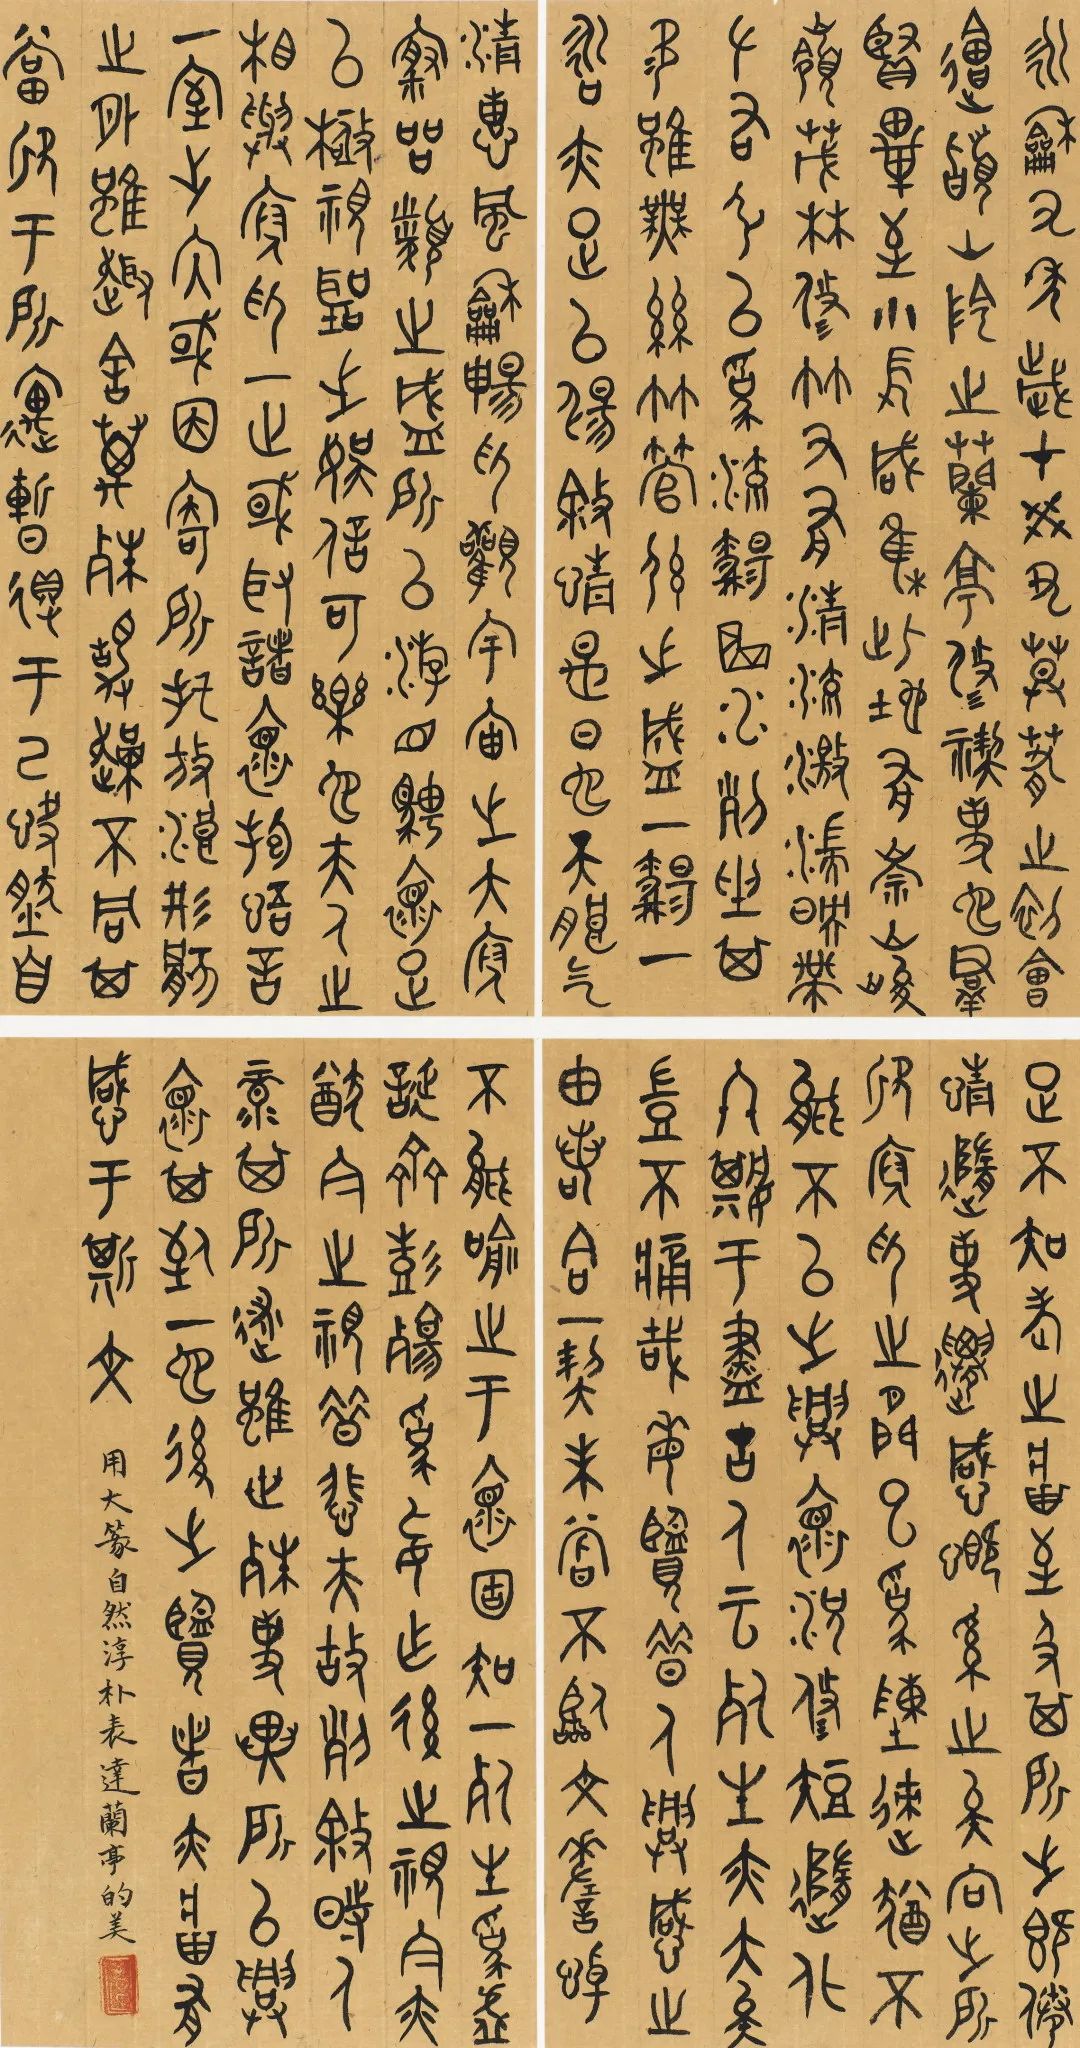 永龢九年歲在癸丑莫春之初會
會稽山陰之蘭亭修禊事也群
賢畢至少長咸集此地有崇山峻
嶺茂林修竹又有清流激湍映帶
左右引以為流觴曲水列坐其
次雖無絲竹管弦之盛一觴一
詠亦足以暢敘情是日也天朗氣
清惠風龢暢仰觀宇宙之大俯
察品類之盛所以游目騁懷足
以極視聽之娛信可樂也夫人之
相與俯仰一世或取諸懷抱悟言
一室之內或因寄所託放浪形骸
之外雖趣舍萬殊靜躁不同其
當欣于所遇暫得于己快然自
足不知老之將至及其所之既倦
情隨事遷感慨係之矣向之所
欣俯仰之間已為陳跡猶不
能不以之興懷況修短隨化
終期于盡古人云死生亦大矣
豈不痛哉每覽昔人興感之
由若合一契未嘗不臨文嗟悼
不能喻之于懷固知一死生為虛
誕齊彭殤為妄作後之視今亦
猶今之視昔悲夫故列敘時人
錄其所述雖世殊事異所以興
懷其致一也後之覽者亦將有
感于斯文
用大篆自然淳朴表達蘭亭的美